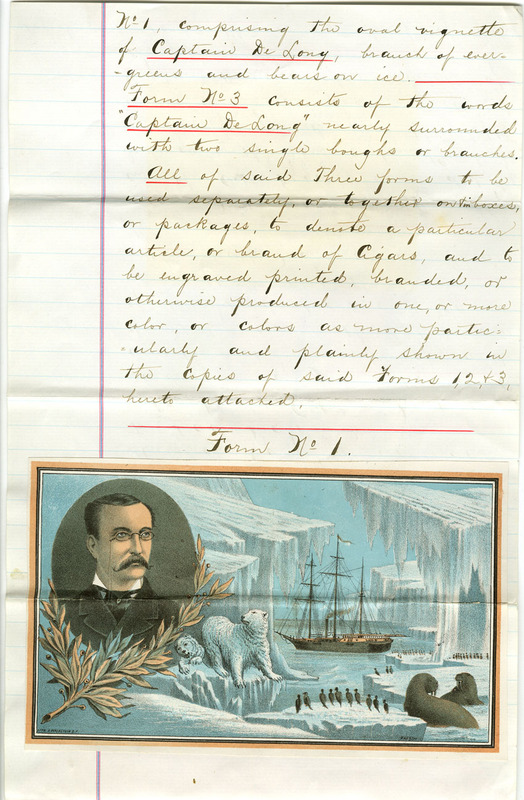 No 1, comprising the oval vignette
of Captain De Long, branch of ever-
-greens and bears on ice.
Form No 3 consists of the words
"Captain De Long" nearly surrounded
with two single boughs or branches.
All of said Three forms to be
used separately, or together on boxes,
or packages, to denote a particular
article, or brand of Cigars, and to
be engraved printed, branded, or
otherwise produced in one, or more
color, or colors as more partic-
-ularly and plainly shown in
the copies of said Forms 1, 2, & 3,
hereto attached.
Form No 1.